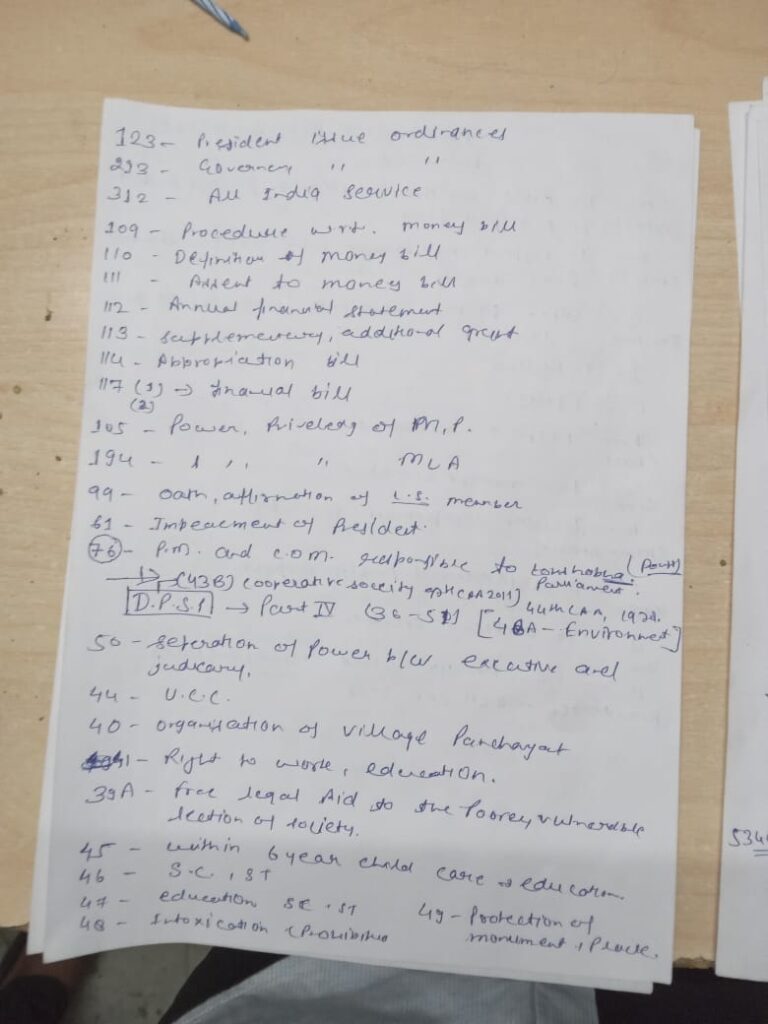 123 - President issue ordinances
293 - Governer, " "
312 - All India Service
109 - Procedure w.r.t. money bill
110 - Definition of money bill
111 - Assent to money bill
112 - Annual financial statement
113 - supplementary, additional grant
114 - Appropriation bill
117 (1) → financial bill
(2)
105 - Power, Priveleg of M.P.
194 - " " MLA
99 - Oath, affirmation of L.S. member
61 - Impeacment of President.
76 - P.M. and C.O.M. responsible to
Parliament.
(43B) cooperative society 2011]
D.P.S.P → Part IV (36-51) 44th CAA, 1978.
[48A - Environment]
50 - seperation of Power b/w executive and
judicary.
44 - U.C.C.
40 - organisation of village Panchayat
41 - Right to work, education.
39A - free legal Aid to the Poorey vulnerable
section of society.
45 - within 6 year child care → education.
46 - S.C, ST
47 - education SC, ST
48 - Intoxication
49 - Protection of
monument, Place.
534